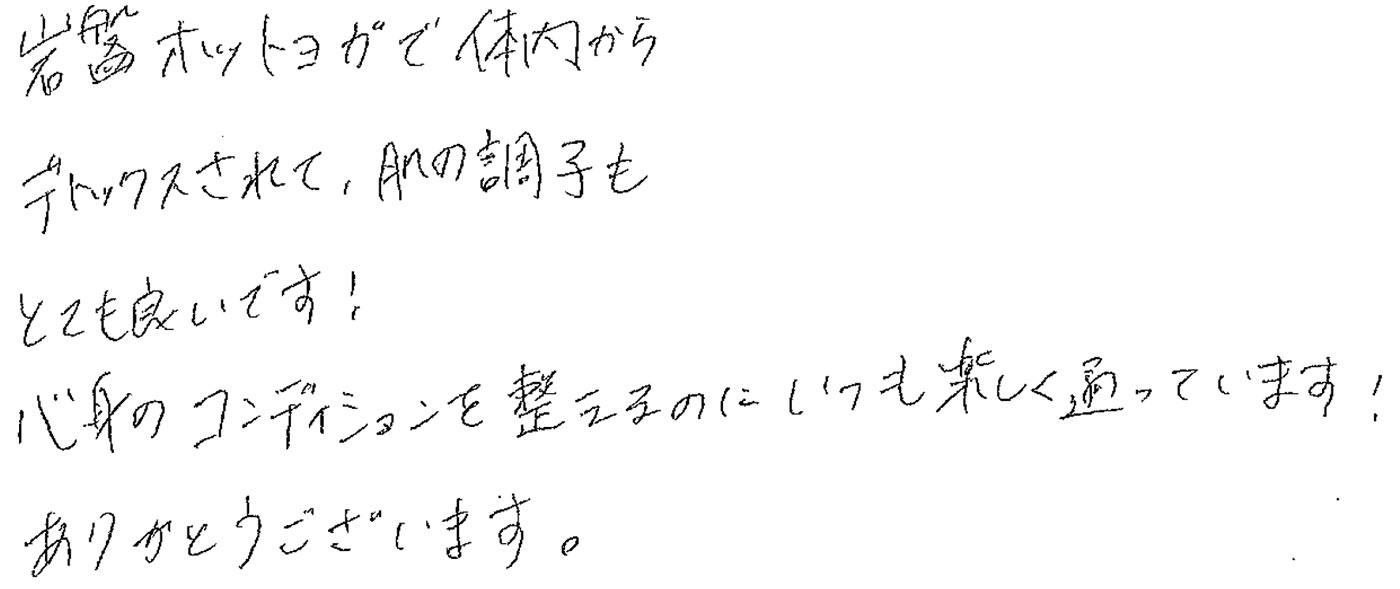 岩盤ホットヨガで体内から
デトックスされて、肌の調子も
とても良いです!
心身のコンディションを整えるのにいつも楽しく通っています!
ありがとうございます。